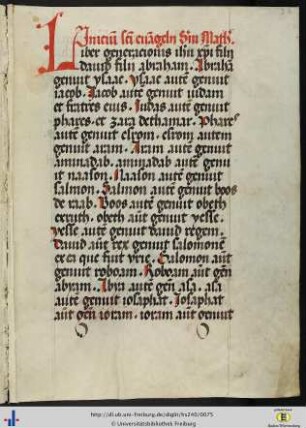 Iniciū sc̄i ew̄ageln̄ Sm̄ Matħ.
Liber generacionis ihū xp̄i filij
dauid filij abraham. Abrahā
genuit ysaac. ysaac autē genuit
iacob. Iacob autē genuit iudam
et fratres eius. Iudas autē genuit
phares. et zara de thamar. Phares
autē genuit esrom. esrom autem
genuit aram. Aram autē genuit
aminadab. aminadab autē genu
it naason. Naason autē genuit
salmon. Salmon autē genuit boos
de raab. Boos autē genuit obeth
ex ruth. obeth aūt genuit yesse.
yesse autē genuit dauid regem.
Dauid aūt rex genuit salomonē
ex ea que fuit vrie. Salomon aūt
genuit roboam. Roboam aūt gēn
abyam. Abya autē gēn asa. asa
autē genuit iosaphat. Iosaphat
aūt gēn ioram. ioram aūt genuit
http://dl.ub.uni-freiburg.de/diglit/hs240/0075
© Universitätsbibliothek Freiburg